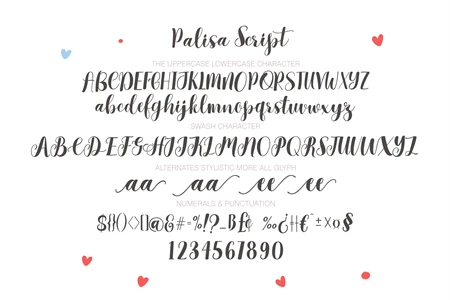 Palisa Script
THE UPPERCASE LOWERCASE CHARACTER
ABCDEFGHIJKLMNOPQRSTUVWXYZ
abcdefghijklmnopqrstuvwxyz
SWASH CHARACTER
ABCDEFGHIJKLMNOPQRSTUVWXYZ
ALTERNATES STYLISTIC MORE ALL GLYPH
aa aa ee ee
NUMERALS & PUNCTUATION
1234567890